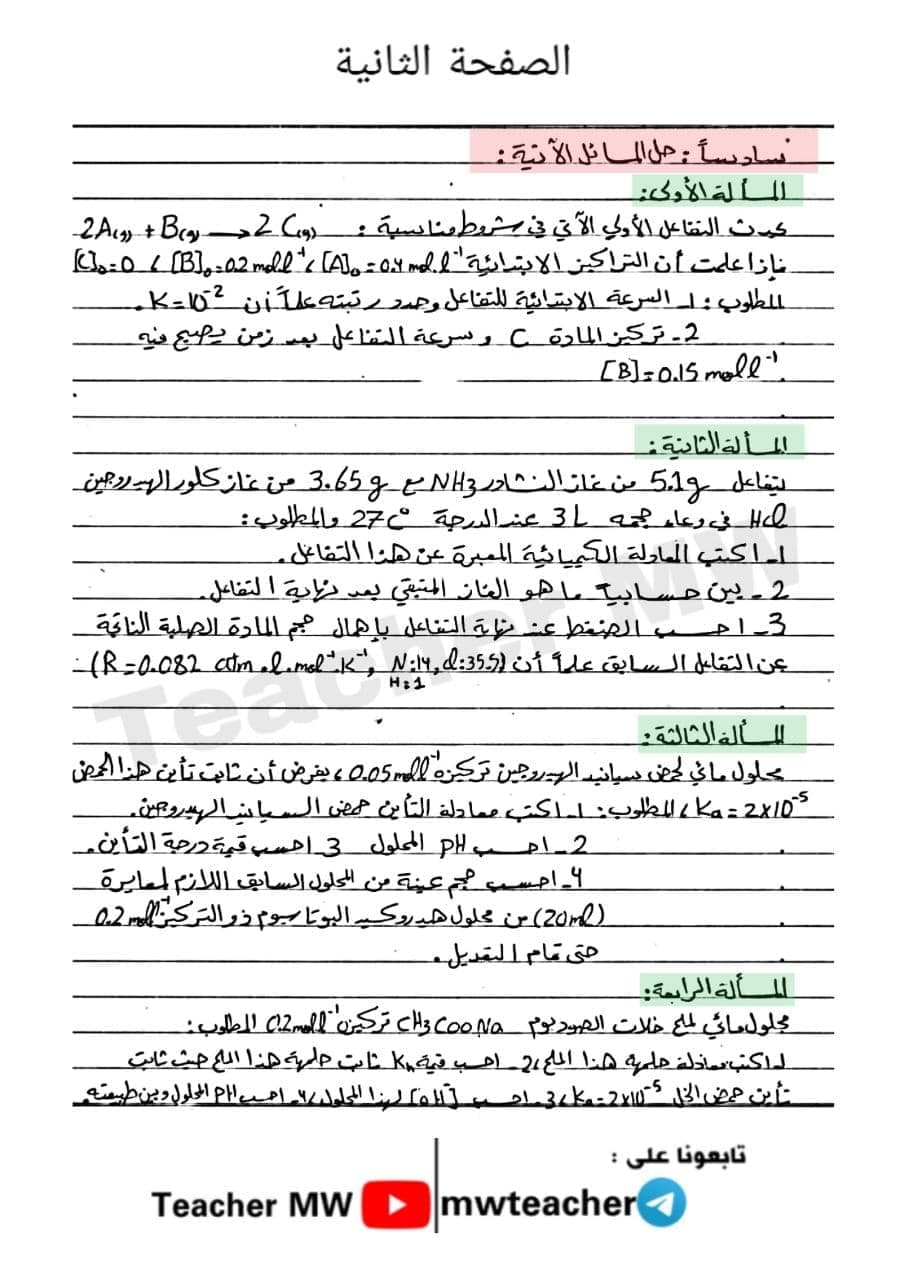 الصفحة الثانية
سادساً: حل المسائل الآتية:
المسألة الأولى:
يحدث التفاعل الأولي الآتي في شروط مناسبة: 2A(g) + B(g) → 2C(g)
فإذا علمت أن التراكيز الابتدائية [A]₀ = 0.4 mol.l⁻¹، [B]₀ = 0.2 mol l⁻¹، [C]₀ = 0
المطلوب: 1ـ السرعة الابتدائية للتفاعل وحدد رتبته علماً أن K = 10⁻².
2ـ تركيز المادة C وسرعة التفاعل بعد زمن يصبح فيه
[B] = 0.15 mol l⁻¹.
المسألة الثانية:
يتفاعل 5.1g من غاز النشادر NH3 مع 3.65g من غاز كلور الهيدروجين
HCl في وعاء حجمه 3L عند الدرجة 27 C° والمطلوب:
1ـ اكتب المعادلة الكيميائية المعبرة عن هذا التفاعل.
2ـ بين حسابياً ما هو الغاز المتبقي بعد نهاية التفاعل.
3ـ احسب الضغط عند نهاية التفاعل بإهمال حجم المادة الصلبة الناتجة
عن التفاعل السابق علماً أن (R = 0.082 atm.l.mol⁻¹.K⁻¹, N:14, Cl:35.5):
H:1
المسألة الثالثة:
محلول مائي لحمض سيانيد الهيدروجين تركيزه 0.05 mol l⁻¹، بفرض أن ثابت تأين هذا الحمض
Ka = 2×10⁻⁵، المطلوب: 1ـ اكتب معادلة التأين حمض السيانيد الهيدروجين.
2ـ احسب PH المحلول 3ـ احسب قيمة درجة التأين.
4ـ احسب حجم عينة من المحلول السابق اللازم لمعايرة
(20ml) من محلول هيدروكسيد البوتاسيوم ذو التركيز 0.2 mol l⁻¹
حتى تمام التعديل.
المسألة الرابعة:
محلول مائي لملح خلات الصوديوم CH3COONa تركيزه 0.2 mol l⁻¹ المطلوب:
1ـ اكتب معادلة حلمهة هذا الملح، 2ـ احسب قيمة Kh ثابت حلمهة هذا الملح حيث ثابت
تأين حمض الخل Ka = 2×10⁻⁵، 3ـ احسب [OH⁻] لهذا المحلول، 4ـ احسب PH المحلول وبين طبيعته.
Teacher MW
تابعونا على :
Teacher MW
mwteacher